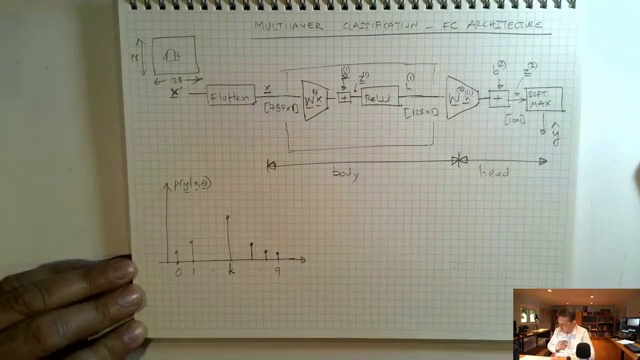 MULTILAYER CLASSIFICATION - FC ARCHITECTURE
28
28
x'
Flatten
x
[784x1]
W⁽¹⁾x
b⁽¹⁾
+
z⁽¹⁾
ReLU
h⁽¹⁾
[128x1]
W⁽²⁾h⁽¹⁾
b⁽²⁾
+
z⁽²⁾
[10x1]
SOFT
MAX
ŷ
body
head
p(y|x,θ)
0 1 k 9